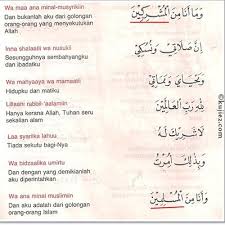 Wa maa ana minal-musyrikiin
Dan aku bukanlah dari golongan
orang-orang yang menyekutukan
Allah
وَمَا أَنَا مِنَ الْمُشْرِكِيْنَ
Inna shalaatii wa nusukii
Sesungguhnya sembahyangku dan
ibadatku
إِنَّ صَلَاتِي وَنُسُكِي
Wa mahyaaya wa mamaati
Hidupku dan matiku
وَمَحْيَايَ وَمَمَاتِي
Lillaahi rabbil-'aalamiin
Hanya kerana Allah, Tuhan seru
sekalian alam
لِلّٰهِ رَبِّ الْعَالَمِيْنَ
Laa syarika lahuu
Tiada sekutu bagi-Nya
لَا شَرِيْكَ لَهُ
Wa bidzaalika umirtu
Dan dengan yang demikianlah
aku diperintahkan
وَبِذٰلِكَ أُمِرْتُ
Wa ana minal muslimiin
Dan aku adalah dari golongan
orang-orang Islam
وَأَنَا مِنَ الْمُسْلِمِيْنَ